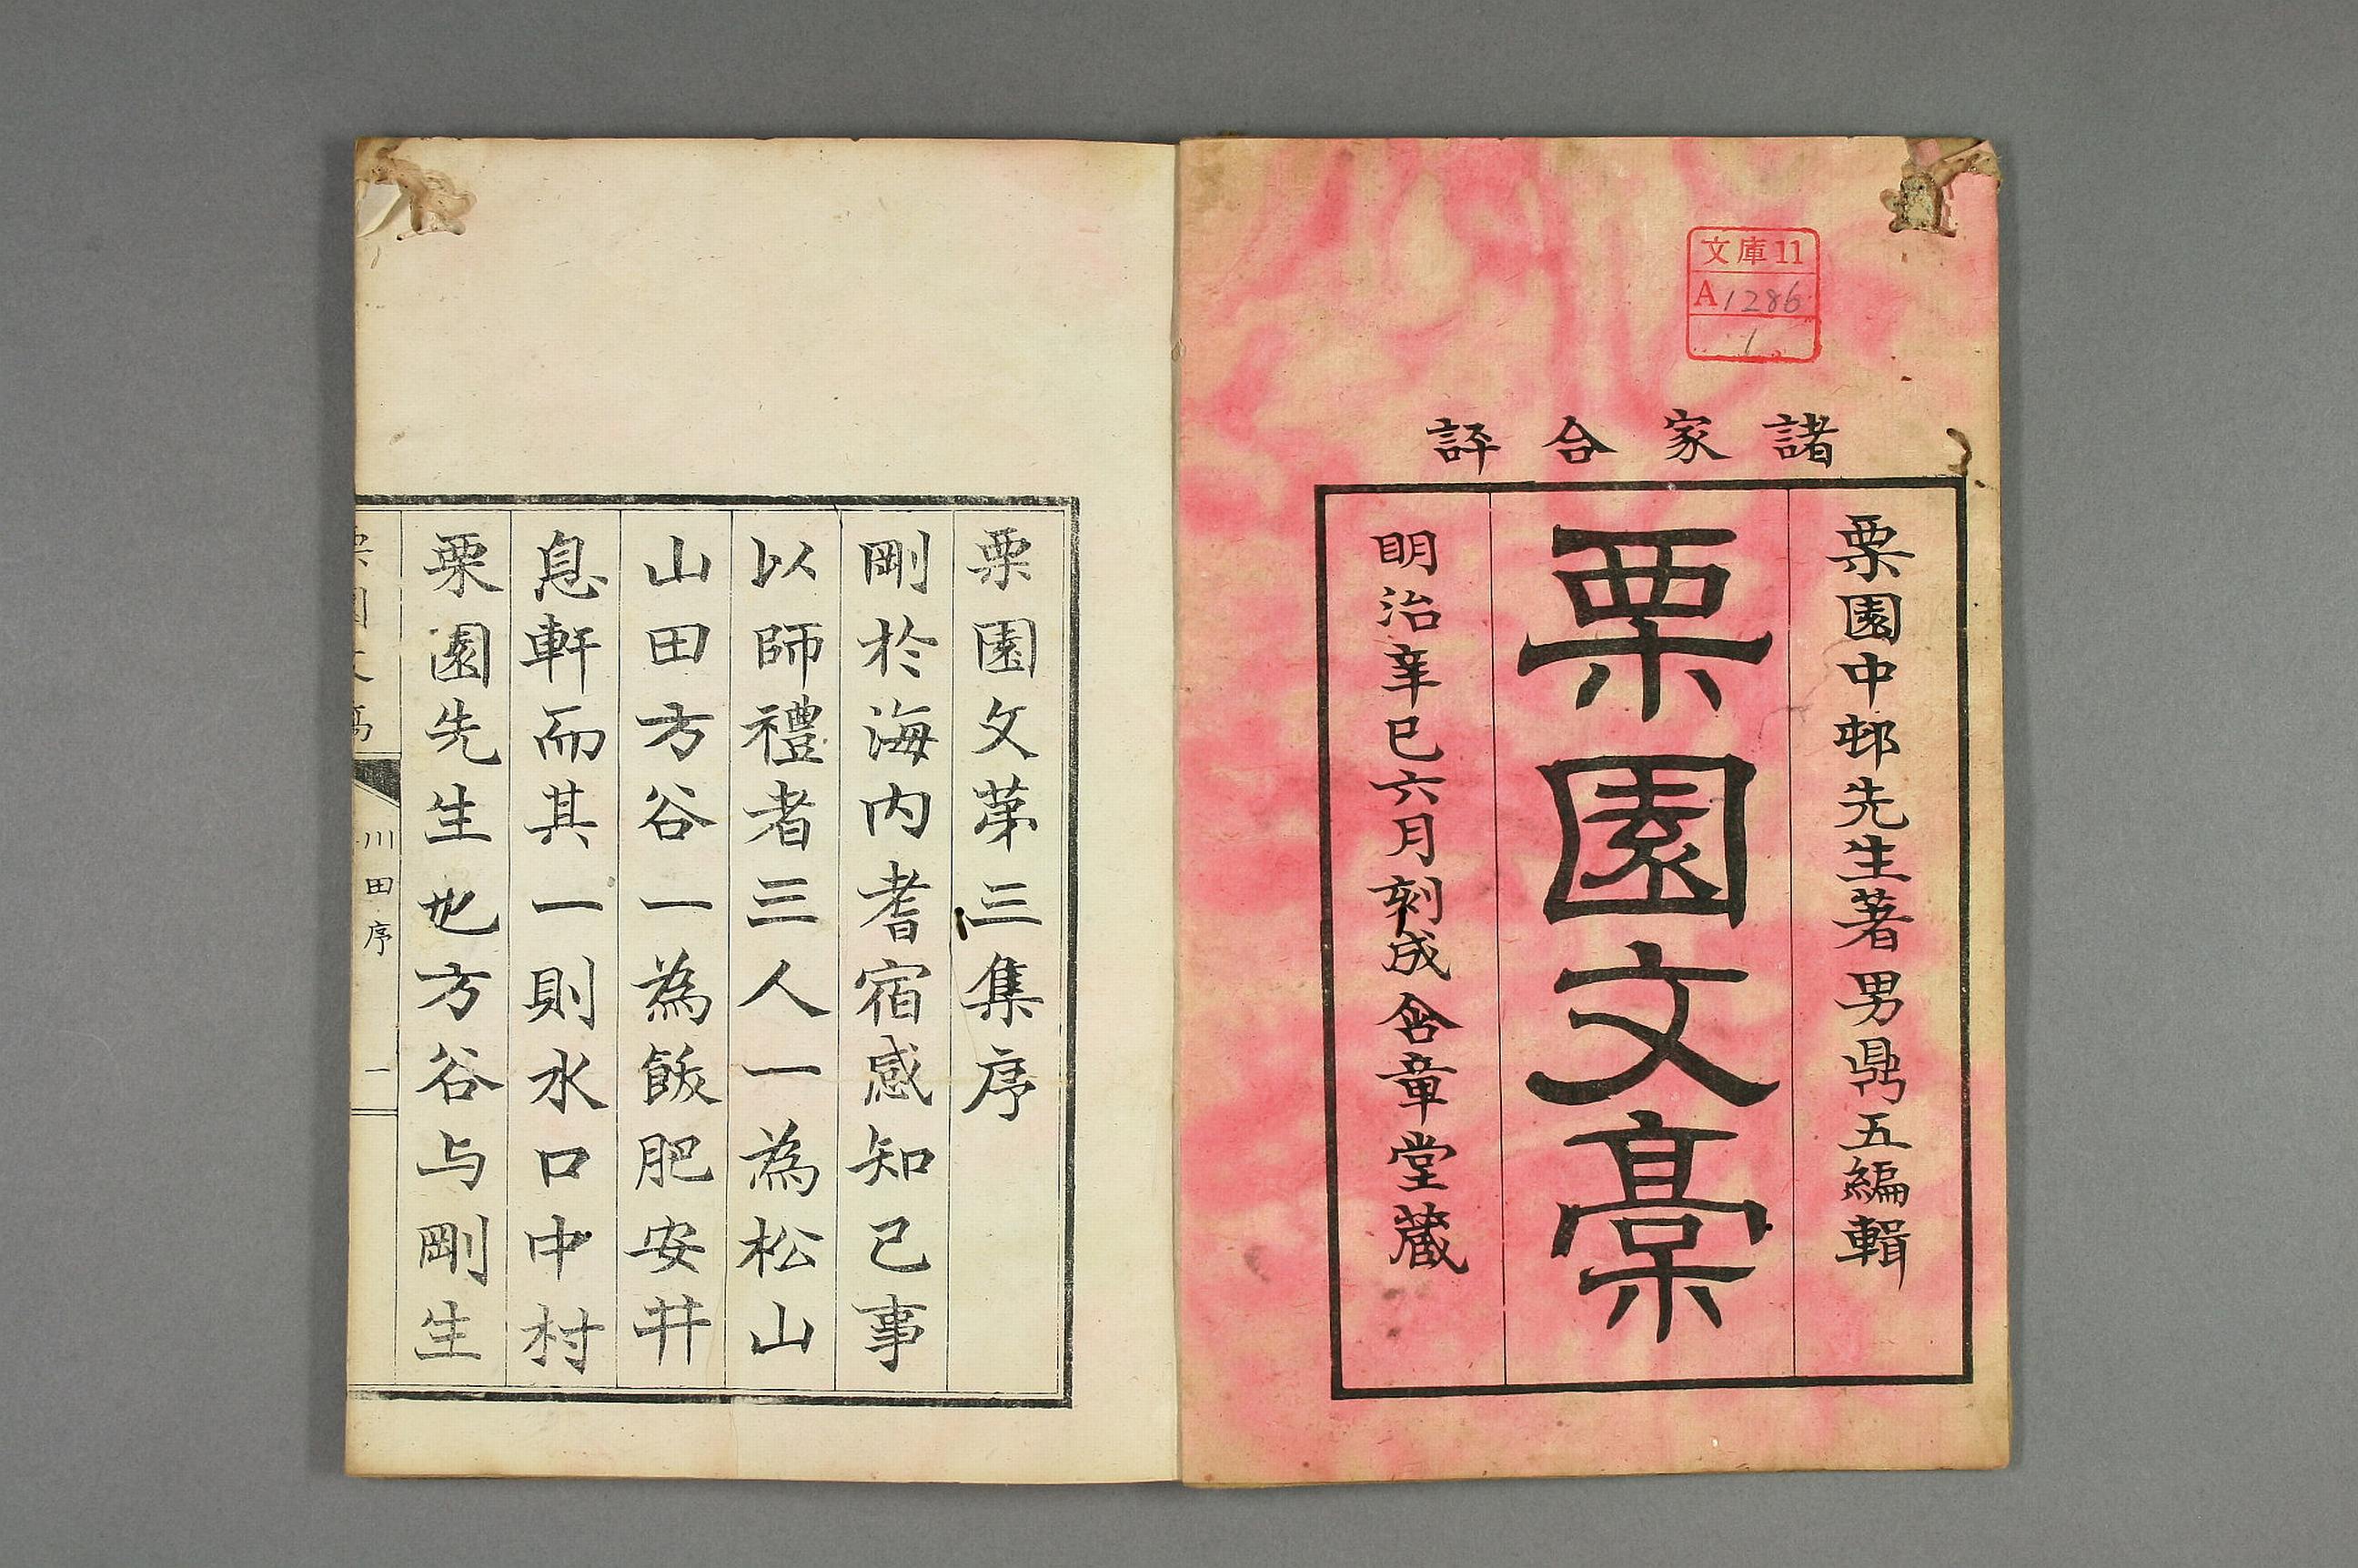 文庫11
A1286
1
諸家合評
栗園中邨先生著 男鼎五編輯
栗園文稾
明治辛巳六月刻成 含章堂蔵
栗園文苐三集序
剛於海内耆宿感知己事
以師禮者三人一為松山
山田方谷一為飫肥安井
息軒而其一則水口中村
栗園先生也方谷与剛生
川田序
一